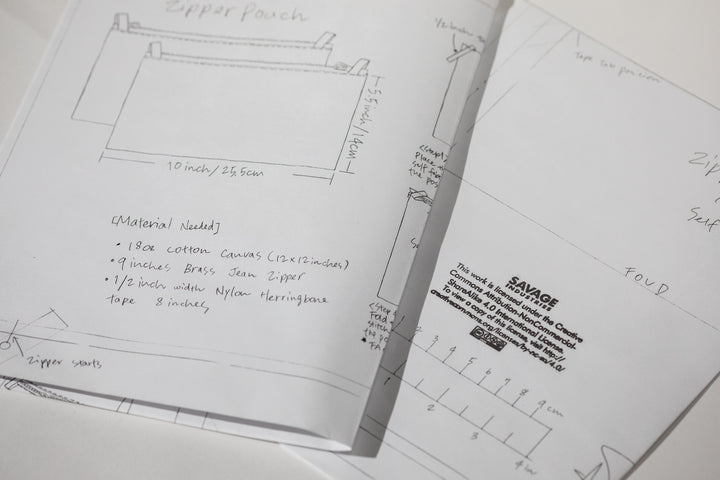 Zipper Pouch
5.5inch/14cm
10inch/25.5cm
[Material Needed]
• 18oz cotton canvas (12x12inches)
• 9 inches Brass Jean Zipper
• 1/2 inch width Nylon Herringbone
tape 8 inches
Zipper starts
1/2
<Step
Place
self
the pos
<Step
Fold
Stitch
the po
FA
Tape tab posicion
Zip
Self
FOLD
SAVAGE
INDUSTRIES
This work is licensed under the Creative
Commons Attribution-NonCommercial-
ShareAlike 4.0 International License.
To view a copy of this license, visit http://
creativecommons.org/licenses/by-nc-sa/4.0/
2 3 4 5 6 7 8 9 cm
1 2 3 4 in